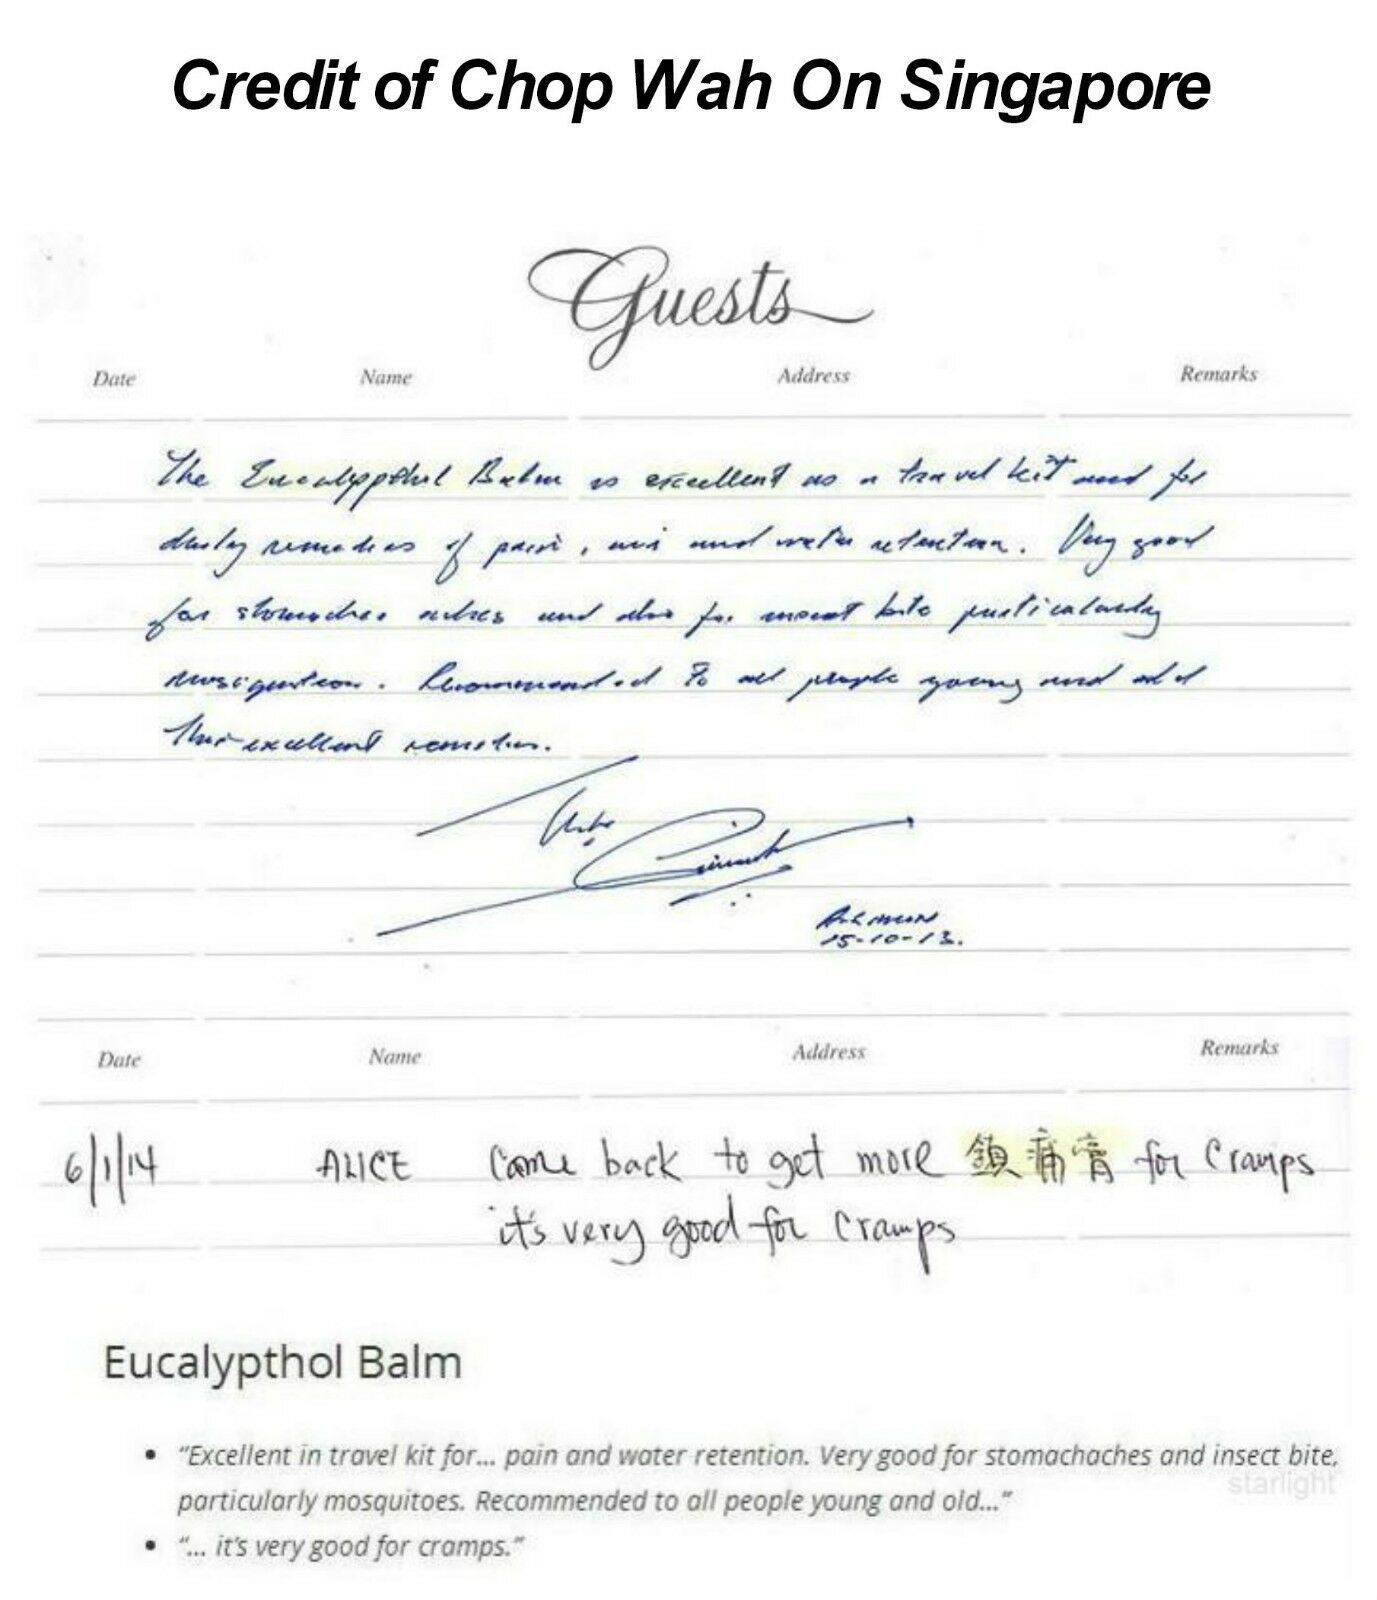 Credit of Chop Wah On Singapore
Guests
Date Name Address Remarks
The Eucalypthol Balm is excellent as a travel kit and for
daily remedies of pain, and water retention. Very good
for stomaches aches and also for insect bite particularly
mosquitoes. Recommended to all people young and old
excellent remedies.
15-10-13.
Date Name Address Remarks
6/1/14 ALICE Come back to get more 鎮痛膏 for cramps
it's very good for cramps
Eucalypthol Balm
• “Excellent in travel kit for... pain and water retention. Very good for stomachaches and insect bite,
particularly mosquitoes. Recommended to all people young and old...”
starlight
• “... it's very good for cramps.”